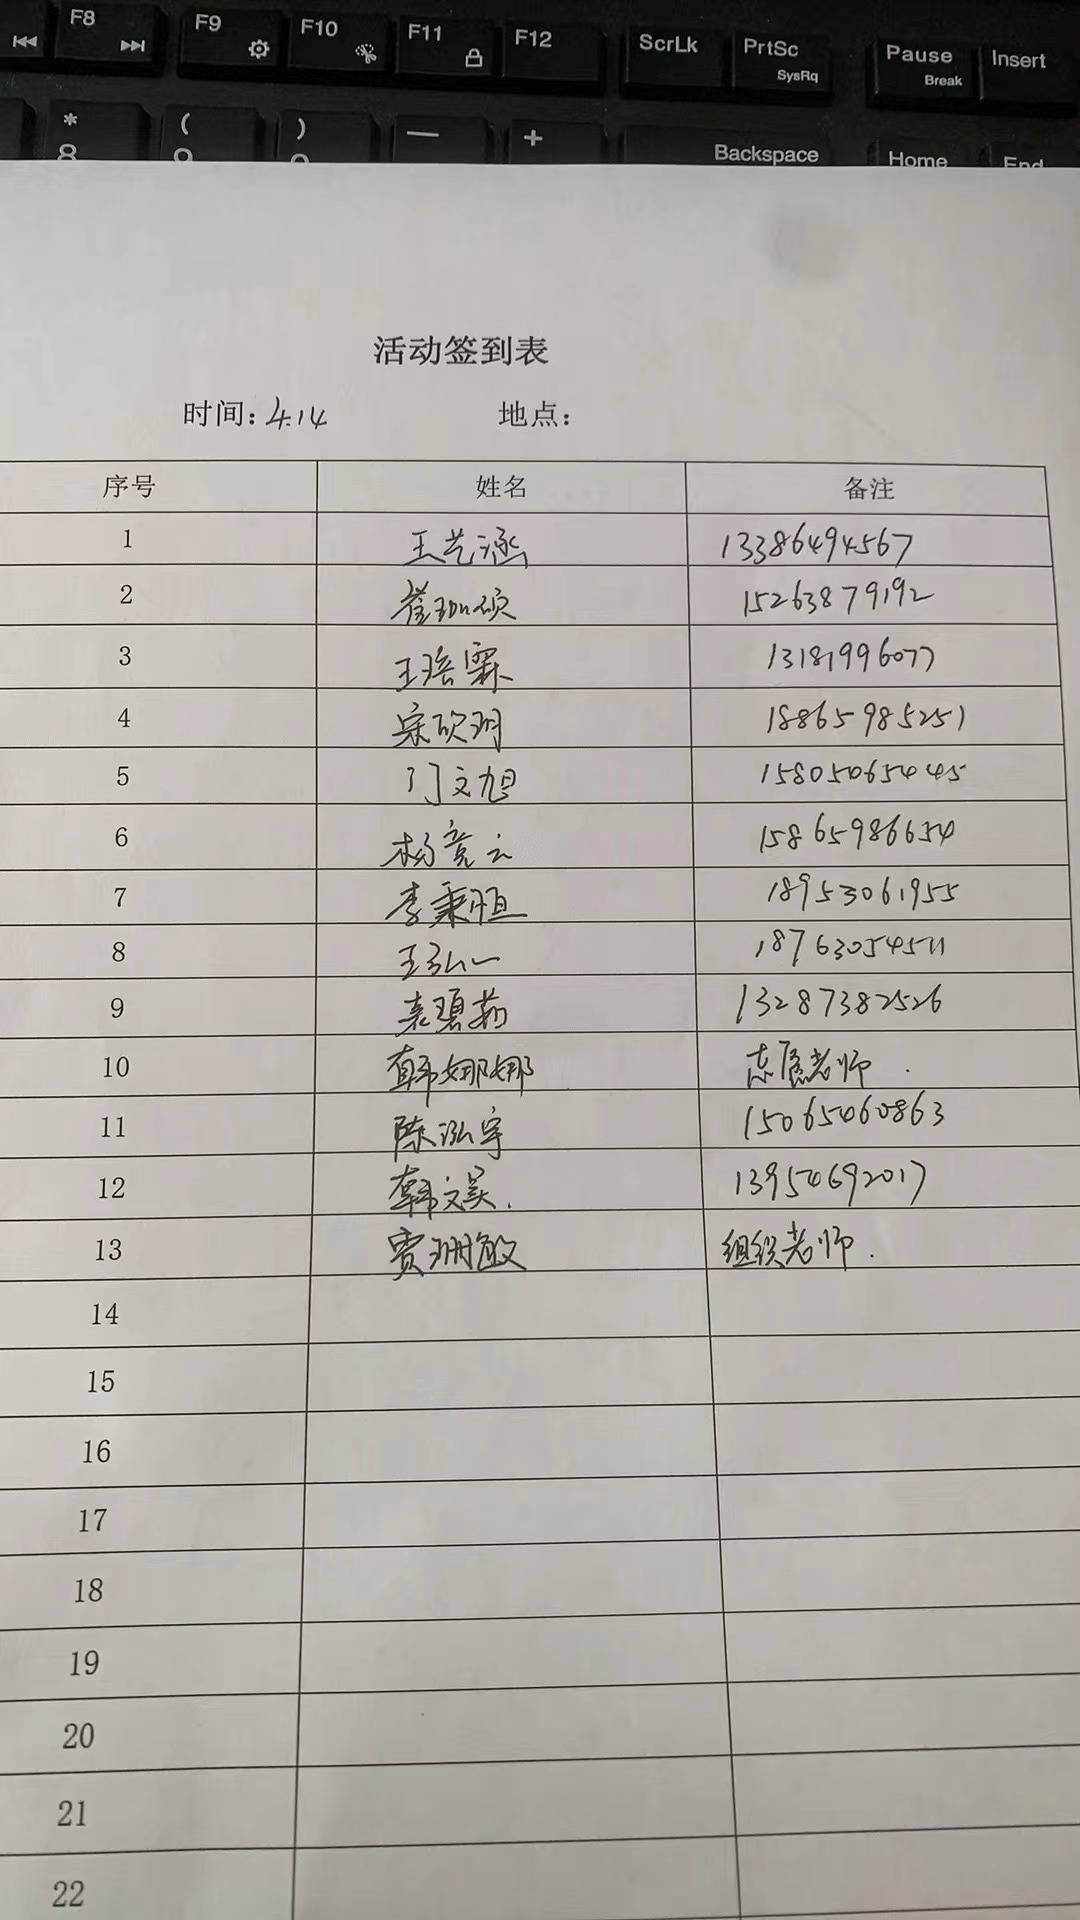 F8 F9 F10 F11 F12 ScrLk PrtSc SysRq Pause Break Insert
* 8 ( ) — + Backspace Home End
活动签到表
时间: 4.14 地点:
序号 姓名 备注
1 王艺涵 13386494567
2 崔珈硕 15263879192
3 王瑶霖 13181996077
4 宋砚玥 18865985251
5 门文旭 15805065445
6 杨竟云 15865986654
7 李秉恒 18953061955
8 王弘一 18763054511
9 袁碧茹 13287382526
10 韩娜娜 志愿老师.
11 陈泓宇 15065460863
12 韩文昊. 13954692017
13 贾珊敏 组织老师.
14
15
16
17
18
19
20
21
22